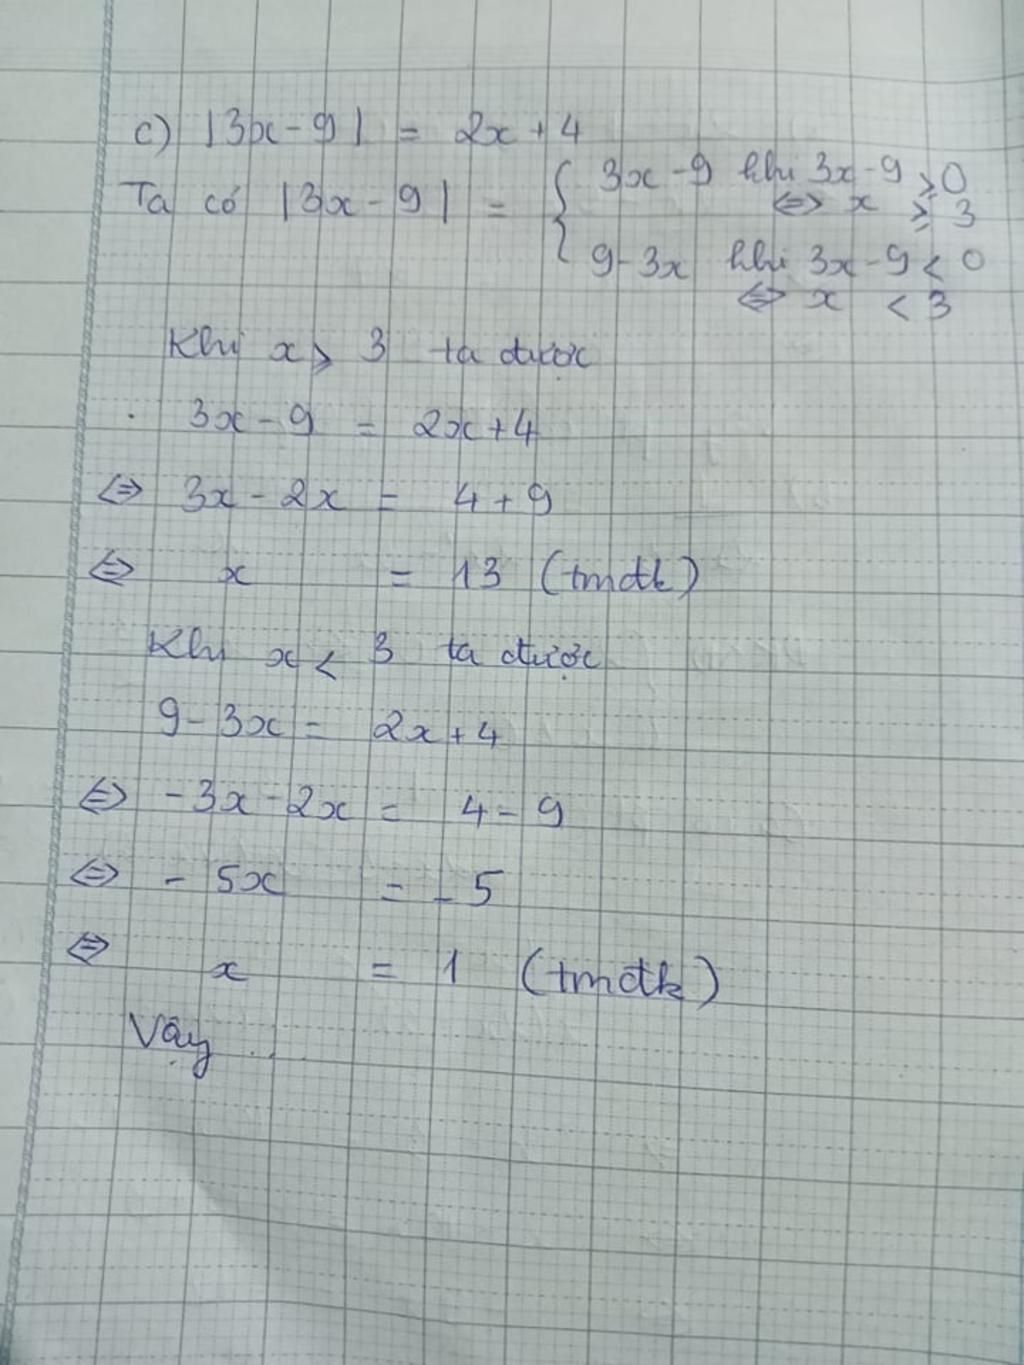 c) |3x - 9| = 2x + 4
Ta có |3x - 9| = { 3x - 9 khi 3x - 9 ⩾ 0
⇔ x ⩾ 3
9 - 3x khi 3x - 9 < 0
⇔ x < 3
Khi x ⩾ 3 ta được
3x - 9 = 2x + 4
⇔ 3x - 2x = 4 + 9
⇔ x = 13 (tmđk)
Khi x < 3 ta được
9 - 3x = 2x + 4
⇔ - 3x - 2x = 4 - 9
⇔ - 5x = - 5
⇔ x = 1 (tmđk)
Vậy ...